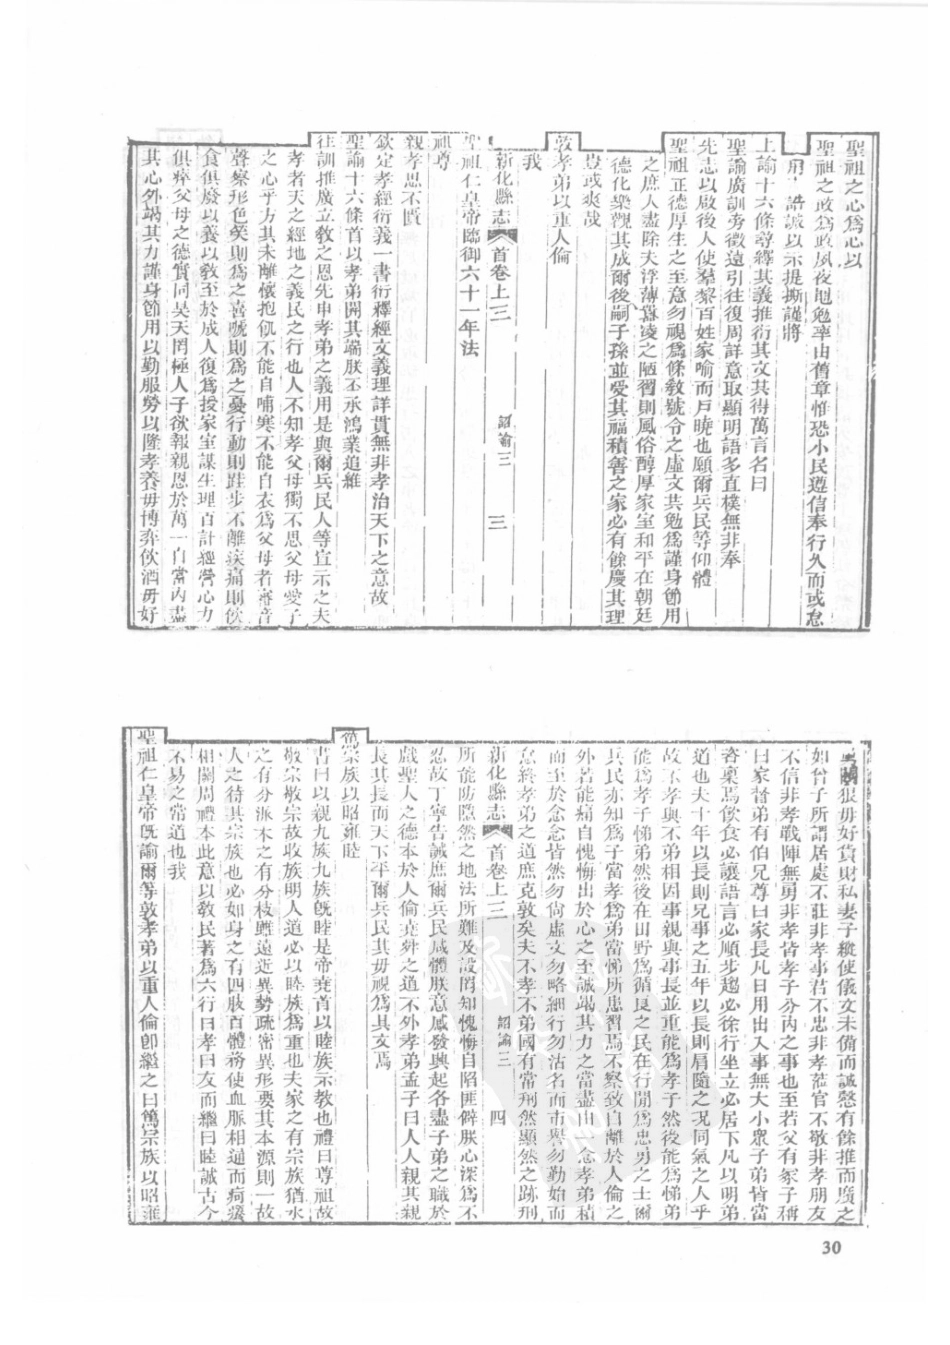 聖祖之心爲心以
聖祖之政爲政夙夜黽勉率由舊章惟恐小民遵信奉行久而或怠
用 誥誡以示提撕謹將
上諭十六條尋繹其義推衍其文共得萬言名曰
聖諭廣訓旁徵遠引往復周詳意取顯明語多直樸無非奉
先志以啟後人使羣黎百姓家喻而戶曉也願爾兵民等仰體
聖祖正德厚生之至意勿視爲條敎號令之虛文共勉爲謹身節用
之庶人盡除夫浮薄囂凌之陋習則風俗醇厚家室和平在朝廷
德化樂觀其成爾後嗣子孫並受其福積善之家必有餘慶其理
豈或爽哉
敦孝弟以重人倫
我
新化縣志 首卷上三 詔諭三 三
聖祖仁皇帝臨御六十一年法
祖尊
親孝思不匱
欽定孝經衍義一書衍釋經文義理詳貫無非孝治天下之意故
聖諭十六條首以孝弟開其端朕丕承鴻業追維
往訓推廣立敎之恩先申孝弟之義用是與爾兵民人等宣示之夫
孝者天之經地之義民之行也人不知孝父母獨不思父母愛子
之心乎方其未離懷抱飢不能自哺寒不能自衣爲父母者審音
聲察形色笑則爲之喜嗁則爲之憂行動則跬步不離疾痛則飲
食俱廢以養以敎至於成人復爲授家室謀生理百計經營心力
俱瘁父母之德實同昊天罔極人子欲報親恩於萬一自當內盡
其心外竭其力謹身節用以勤服勞以隆孝養毋博弈飲酒毋好
勇鬭狠毋好貨財私妻子縱使儀文未備而誠愨有餘推而廣之
如曾子所謂居處不莊非孝事君不忠非孝蒞官不敬非孝朋友
不信非孝戰陣無勇非孝皆孝子分內之事也至若父有冢子稱
曰家督弟有伯兄尊曰家長凡日用出入事無大小衆子弟皆當
咨稟焉飲食必讓語言必順步趨必徐行坐立必居下凡以明弟
道也夫十年以長則兄事之五年以長則肩隨之况同氣之人乎
故不孝與不弟相因事親與事長並重能爲孝子然後能爲悌弟
能爲孝子悌弟然後在田野爲循良之民在行間爲忠勇之士爾
兵民亦知爲子當孝爲弟當悌所患習焉不察致自離於人倫之
外若能痛自愧悔出於心之至誠竭其力之當盡由一念孝弟積
而至於念念皆然勿尙虛文勿略細行勿沽名而市譽勿勤始而
怠終孝弟之道庶克敦矣夫不孝不弟國有常刑然顯然之跡刑
新化縣志 首卷上三 詔諭三 四
所能防隱然之地法所難及設罔知愧悔自陷匪僻朕心深爲不
忍故丁寧告誡庶爾兵民咸體朕意感發興起各盡子弟之職於
戲聖人之德本於人倫堯舜之道不外孝弟孟子曰人人親其親
長其長而天下平爾兵民其毋視爲具文焉
篤宗族以昭雍睦
書曰以親九族九族旣睦是帝堯首以睦族示敎也禮曰尊祖故
敬宗敬宗故收族明人道必以睦族爲重也夫家之有宗族猶水
之有分派木之有分枝雖遠近異勢疏密異形要其本源則一故
人之待其宗族也必如身之有四肢百體務使血脈相通而疴癢
相關周禮本此意以敎民著爲六行曰孝曰友而繼曰睦誠古今
不易之常道也我
聖祖仁皇帝旣諭爾等敦孝弟以重人倫卽繼之曰篤宗族以昭雍
30